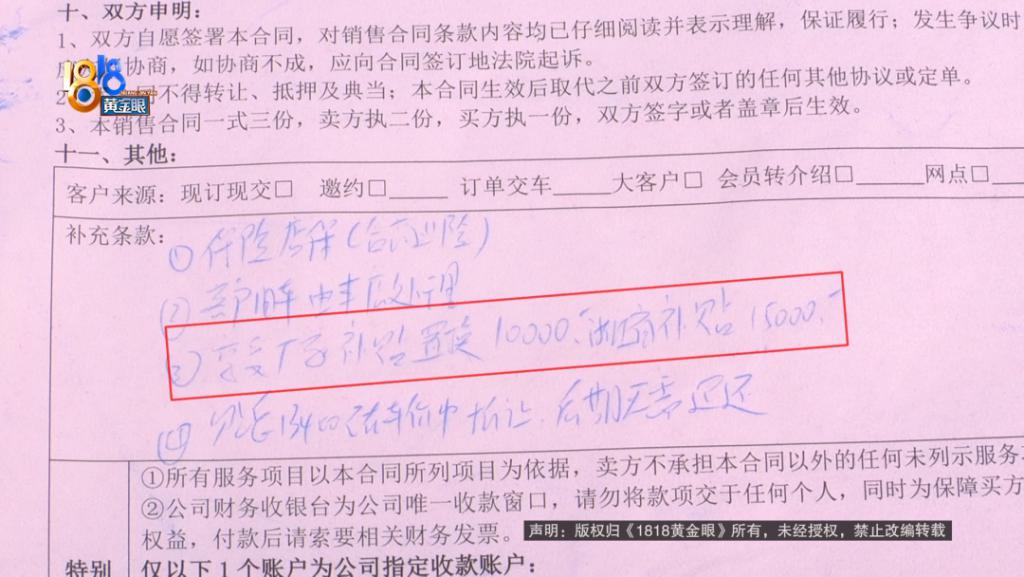 十、双方申明：
1、双方自愿签署本合同，对销售合同条款内容均已仔细阅读并表示理解，保证履行；发生争议时
协商，如协商不成，应向合同签订地法院起诉。
1818
黄金眼
不得转让、抵押及典当；本合同生效后取代之前双方签订的任何其他协议或定单。
3、本销售合同一式三份，卖方执二份，买方执一份，双方签字或者盖章后生效。
十一、其他：
客户来源：现订现交□ 邀约□_____ 订单交车_____大客户□ 会员转介绍□______网点□
补充条款：
①保险店保(含商业险)
② 旧车由车店处理
③享受厂家补贴置换10000.- 补贴15000.-
④ 在车价中折让.后期无需退还
①所有服务项目以本合同所列项目为依据，卖方不承担本合同以外的任何未列示服务
②公司财务收银台为公司唯一收款窗口，请勿将款项交于任何个人，同时为保障买方
权益，付款后请索要相关财务发票。
声明：版权归《1818黄金眼》所有，未经授权，禁止改编转载
特别 仅以下1个账户为公司指定收款账户：